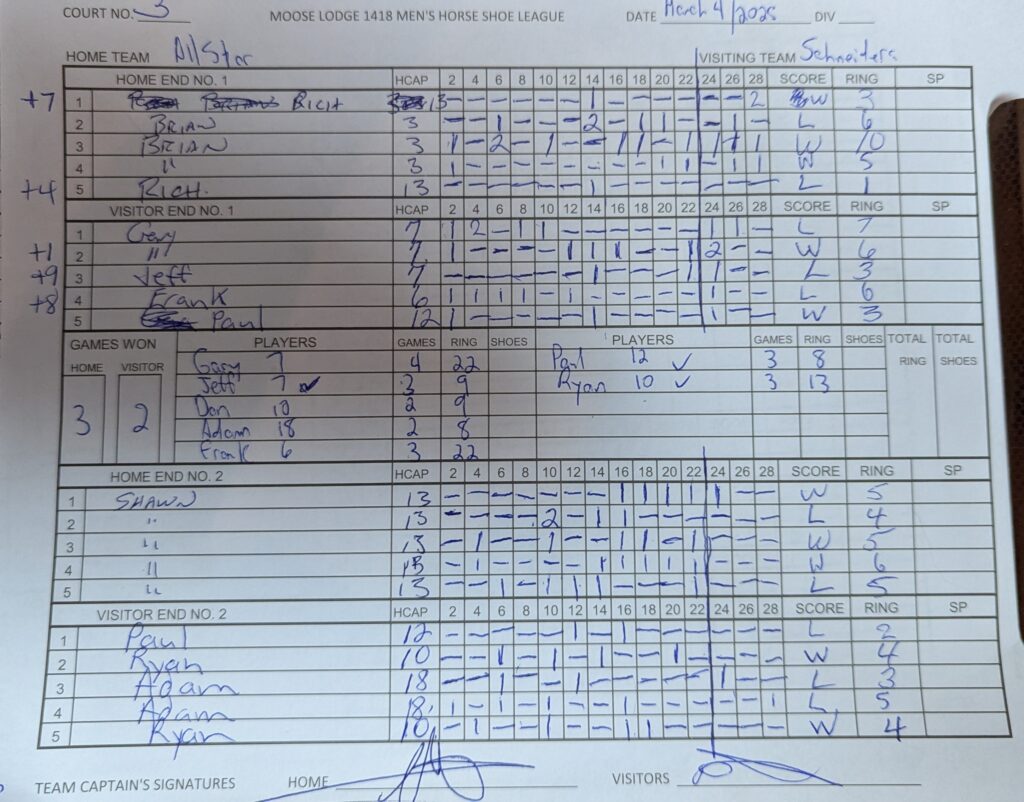 COURT NO. 3 MOOSE LODGE 1418 MEN'S HORSE SHOE LEAGUE DATE March 4/2025 DIV
HOME TEAM AllStar VISITING TEAM Schneiders
HOME END NO. 1 HCAP 2 4 6 8 10 12 14 16 18 20 22 24 26 28 SCORE RING SP
+7 1 RICH 13 - - - - - - 1 - - - - - - 2 W 3
2 BRIAN 3 - - 1 - - - 2 - 1 1 - - 1 - L 6
3 BRIAN 3 1 - 2 - 1 - - 1 1 - 1 1 1 1 W 10
4 " 3 1 - - - - - - - - 1 1 - 1 1 W 5
+4 5 RICH. 13 - - - - - - 1 - - - - - - - L 1
VISITOR END NO. 1 HCAP 2 4 6 8 10 12 14 16 18 20 22 24 26 28 SCORE RING SP
1 Gary 7 1 2 - 1 1 - - - - - - 1 1 - L 7
+1 2 " 7 1 - - - - 1 1 1 - - 1 2 - - W 6
+9 3 Jeff 7 - - - - - - 1 - - - 1 1 - - L 3
+8 4 Frank 6 1 1 1 1 - 1 - - - - - 1 - - L 6
5 Paul 12 1 - - - - - 1 - - - - 1 - - W 3
GAMES WON PLAYERS GAMES RING SHOES PLAYERS GAMES RING SHOES TOTAL RING TOTAL SHOES
HOME VISITOR
3 2
Gary 7 4 22 Paul 12 ✓ 3 8
Jeff 7 ✓ 3 9 Ryan 10 ✓ 3 13
Don 10 2 9
Adam 18 2 8
Frank 6 3 22
HOME END NO. 2 HCAP 2 4 6 8 10 12 14 16 18 20 22 24 26 28 SCORE RING SP
1 SHAWN 13 - - - - - - - 1 1 1 1 1 - - W 5
2 " 13 - - - - 2 - 1 1 - - - - - - L 4
3 " 13 - 1 - - 1 - - 1 1 - 1 - - - W 5
4 " 13 - 1 - - - - 1 1 1 1 1 - - - W 6
5 " 13 - - 1 - 1 1 1 - - - 1 - - - L 5
VISITOR END NO. 2 HCAP 2 4 6 8 10 12 14 16 18 20 22 24 26 28 SCORE RING SP
1 Paul 12 - - - - - 1 - 1 - - - - - - L 2
2 Ryan 10 - - 1 - 1 - 1 - - 1 - - - - W 4
3 Adam 18 - - 1 - - 1 - - - - - 1 - - L 3
4 Adam 18 1 - 1 - 1 - 1 - - - - - - 1 L 5
5 Ryan 10 - 1 - - 1 - - 1 1 - - - - - W 4
TEAM CAPTAIN'S SIGNATURES HOME VISITORS